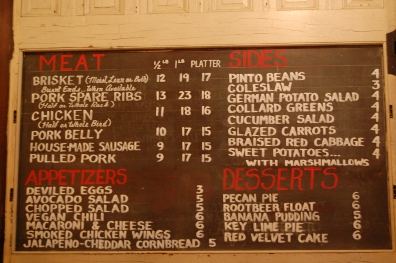 MEAT ½ LB 1 LB PLATTER
BRISKET (Moist, Lean or Both) 12 19 17
Burnt Ends, When Available
PORK SPARE RIBS 13 23 18
(Half or Whole Rack)
CHICKEN 11 18 16
(Half or Whole Bird)
PORK BELLY 10 17 15
HOUSE-MADE SAUSAGE 9 17 15
PULLED PORK 9 17 15
SIDES
PINTO BEANS 4
COLESLAW 3
GERMAN POTATO SALAD 4
COLLARD GREENS 4
CUCUMBER SALAD 4
GLAZED CARROTS 4
BRAISED RED CABBAGE 4
SWEET POTATOES... 4
WITH MARSHMALLOWS
APPETIZERS
DEVILED EGGS 3
AVOCADO SALAD 5
CHOPPED SALAD 5
VEGAN CHILI 6
MACARONI & CHEESE 6
SMOKED CHICKEN WINGS 6
JALAPEÑO-CHEDDAR CORNBREAD 5
DESSERTS
PECAN PIE 6
ROOTBEER FLOAT 6
BANANA PUDDING 5
KEY LIME PIE 6
RED VELVET CAKE 6